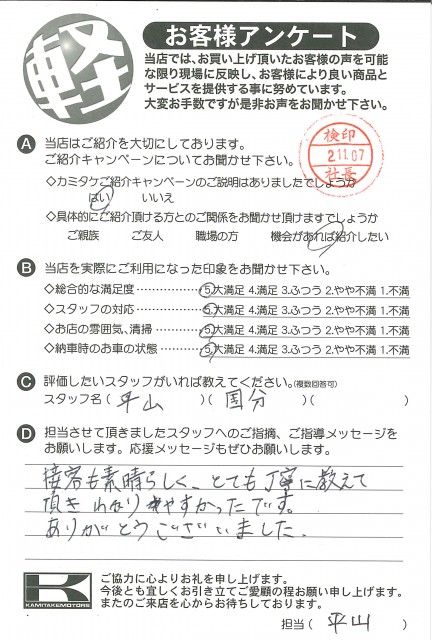 軽
お客様アンケート
当店では、お買い上げ頂いたお客様の声を可能
な限り現場に反映し、お客様により良い商品と
サービスを提供する事に努めています。
大変お手数ですが是非お声をお聞かせ下さい。
A 当店はご紹介を大切にしております。
ご紹介キャンペーンについてお聞かせ下さい。
検印
2.11.07
社長
◇カミタケご紹介キャンペーンのご説明はありましたでしょうか
はい いいえ
◇具体的にご紹介頂ける方とのご関係をお聞かせ頂けますでしょうか
ご親族 ご友人 職場の方 機会があれば紹介したい
B 当店を実際にご利用になった印象をお聞かせ下さい。
◇総合的な満足度⋯⋯⋯⋯5.大満足 4.満足 3.ふつう 2.やや不満 1.不満
◇スタッフの対応⋯⋯⋯⋯5.大満足 4.満足 3.ふつう 2.やや不満 1.不満
◇お店の雰囲気、清掃⋯⋯5.大満足 4.満足 3.ふつう 2.やや不満 1.不満
◇納車時のお車の状態⋯⋯5.大満足 4.満足 3.ふつう 2.やや不満 1.不満
C 評価したいスタッフがいれば教えてください。(複数回答可)
スタッフ名( 平山 )( 国分 )( )
D 担当させて頂きましたスタッフへのご指摘、ご指導メッセージを
お願いします。応援メッセージもぜひお願いします。
接客も素晴らしく、とても丁寧に教えて
頂き わかりやすかったです。
ありがとうございました。
K
KAMITAKEMOTORS
ご協力に心よりお礼を申し上げます。
今後とも宜しくお引き立てご愛顧の程お願い申し上げます。
またのご来店を心からお待ちしております。
担当( 平山 )